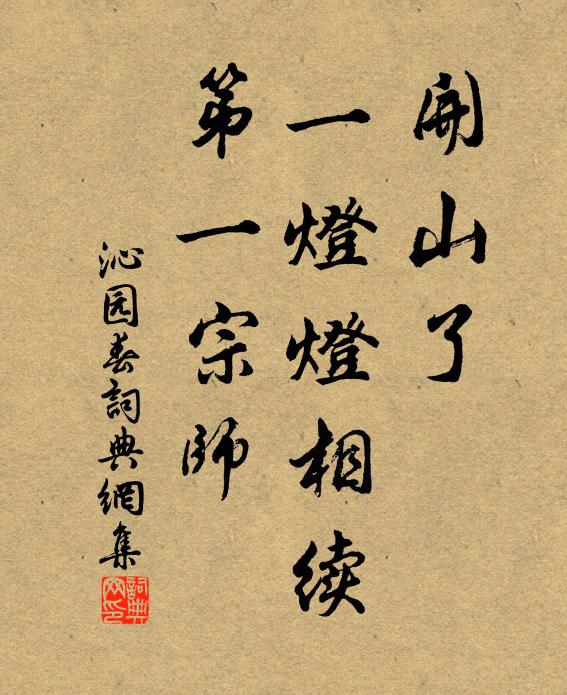 開山了
一燈燈相续
第一宗師
沁园春詞典網集
詞典
网印